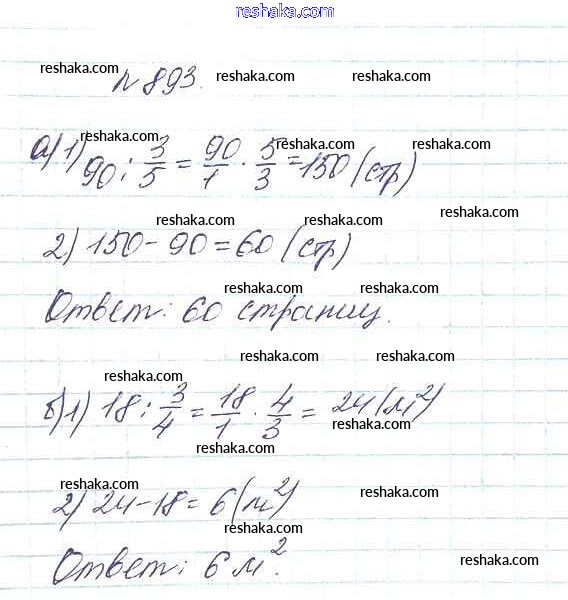 reshaka.com
№ 893.
reshaka.com reshaka.com reshaka.com
reshaka.com reshaka.com reshaka.com
а) 1) 90 : 3/5 = 90/1 · 5/3 = 150 (стр)
reshaka.com reshaka.com reshaka.com
2) 150 - 90 = 60 (стр)
reshaka.com reshaka.com reshaka.com
Ответ: 60 страниц.
reshaka.com reshaka.com
reshaka.com reshaka.com
б) 1) 18 : 3/4 = 18/1 · 4/3 = 24 (м²)
reshaka.com
reshaka.com reshaka.com
2) 24 - 18 = 6 (м²)
reshaka.com reshaka.com
Ответ: 6 м².